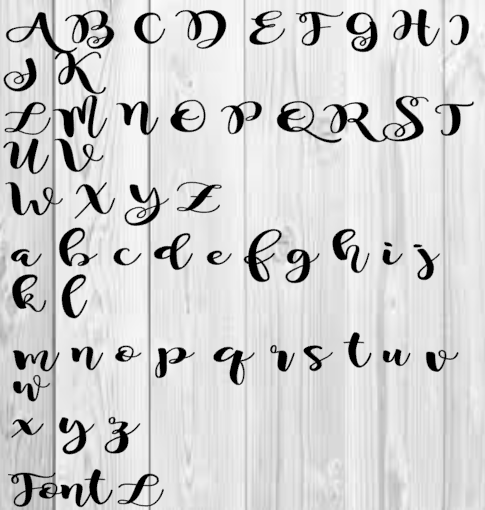 A B C D E F G H I
J K
L M N O P Q R S T
U V
W X Y Z
a b c d e f g h i j
k l
m n o p q r s t u v
w
x y z
Font L